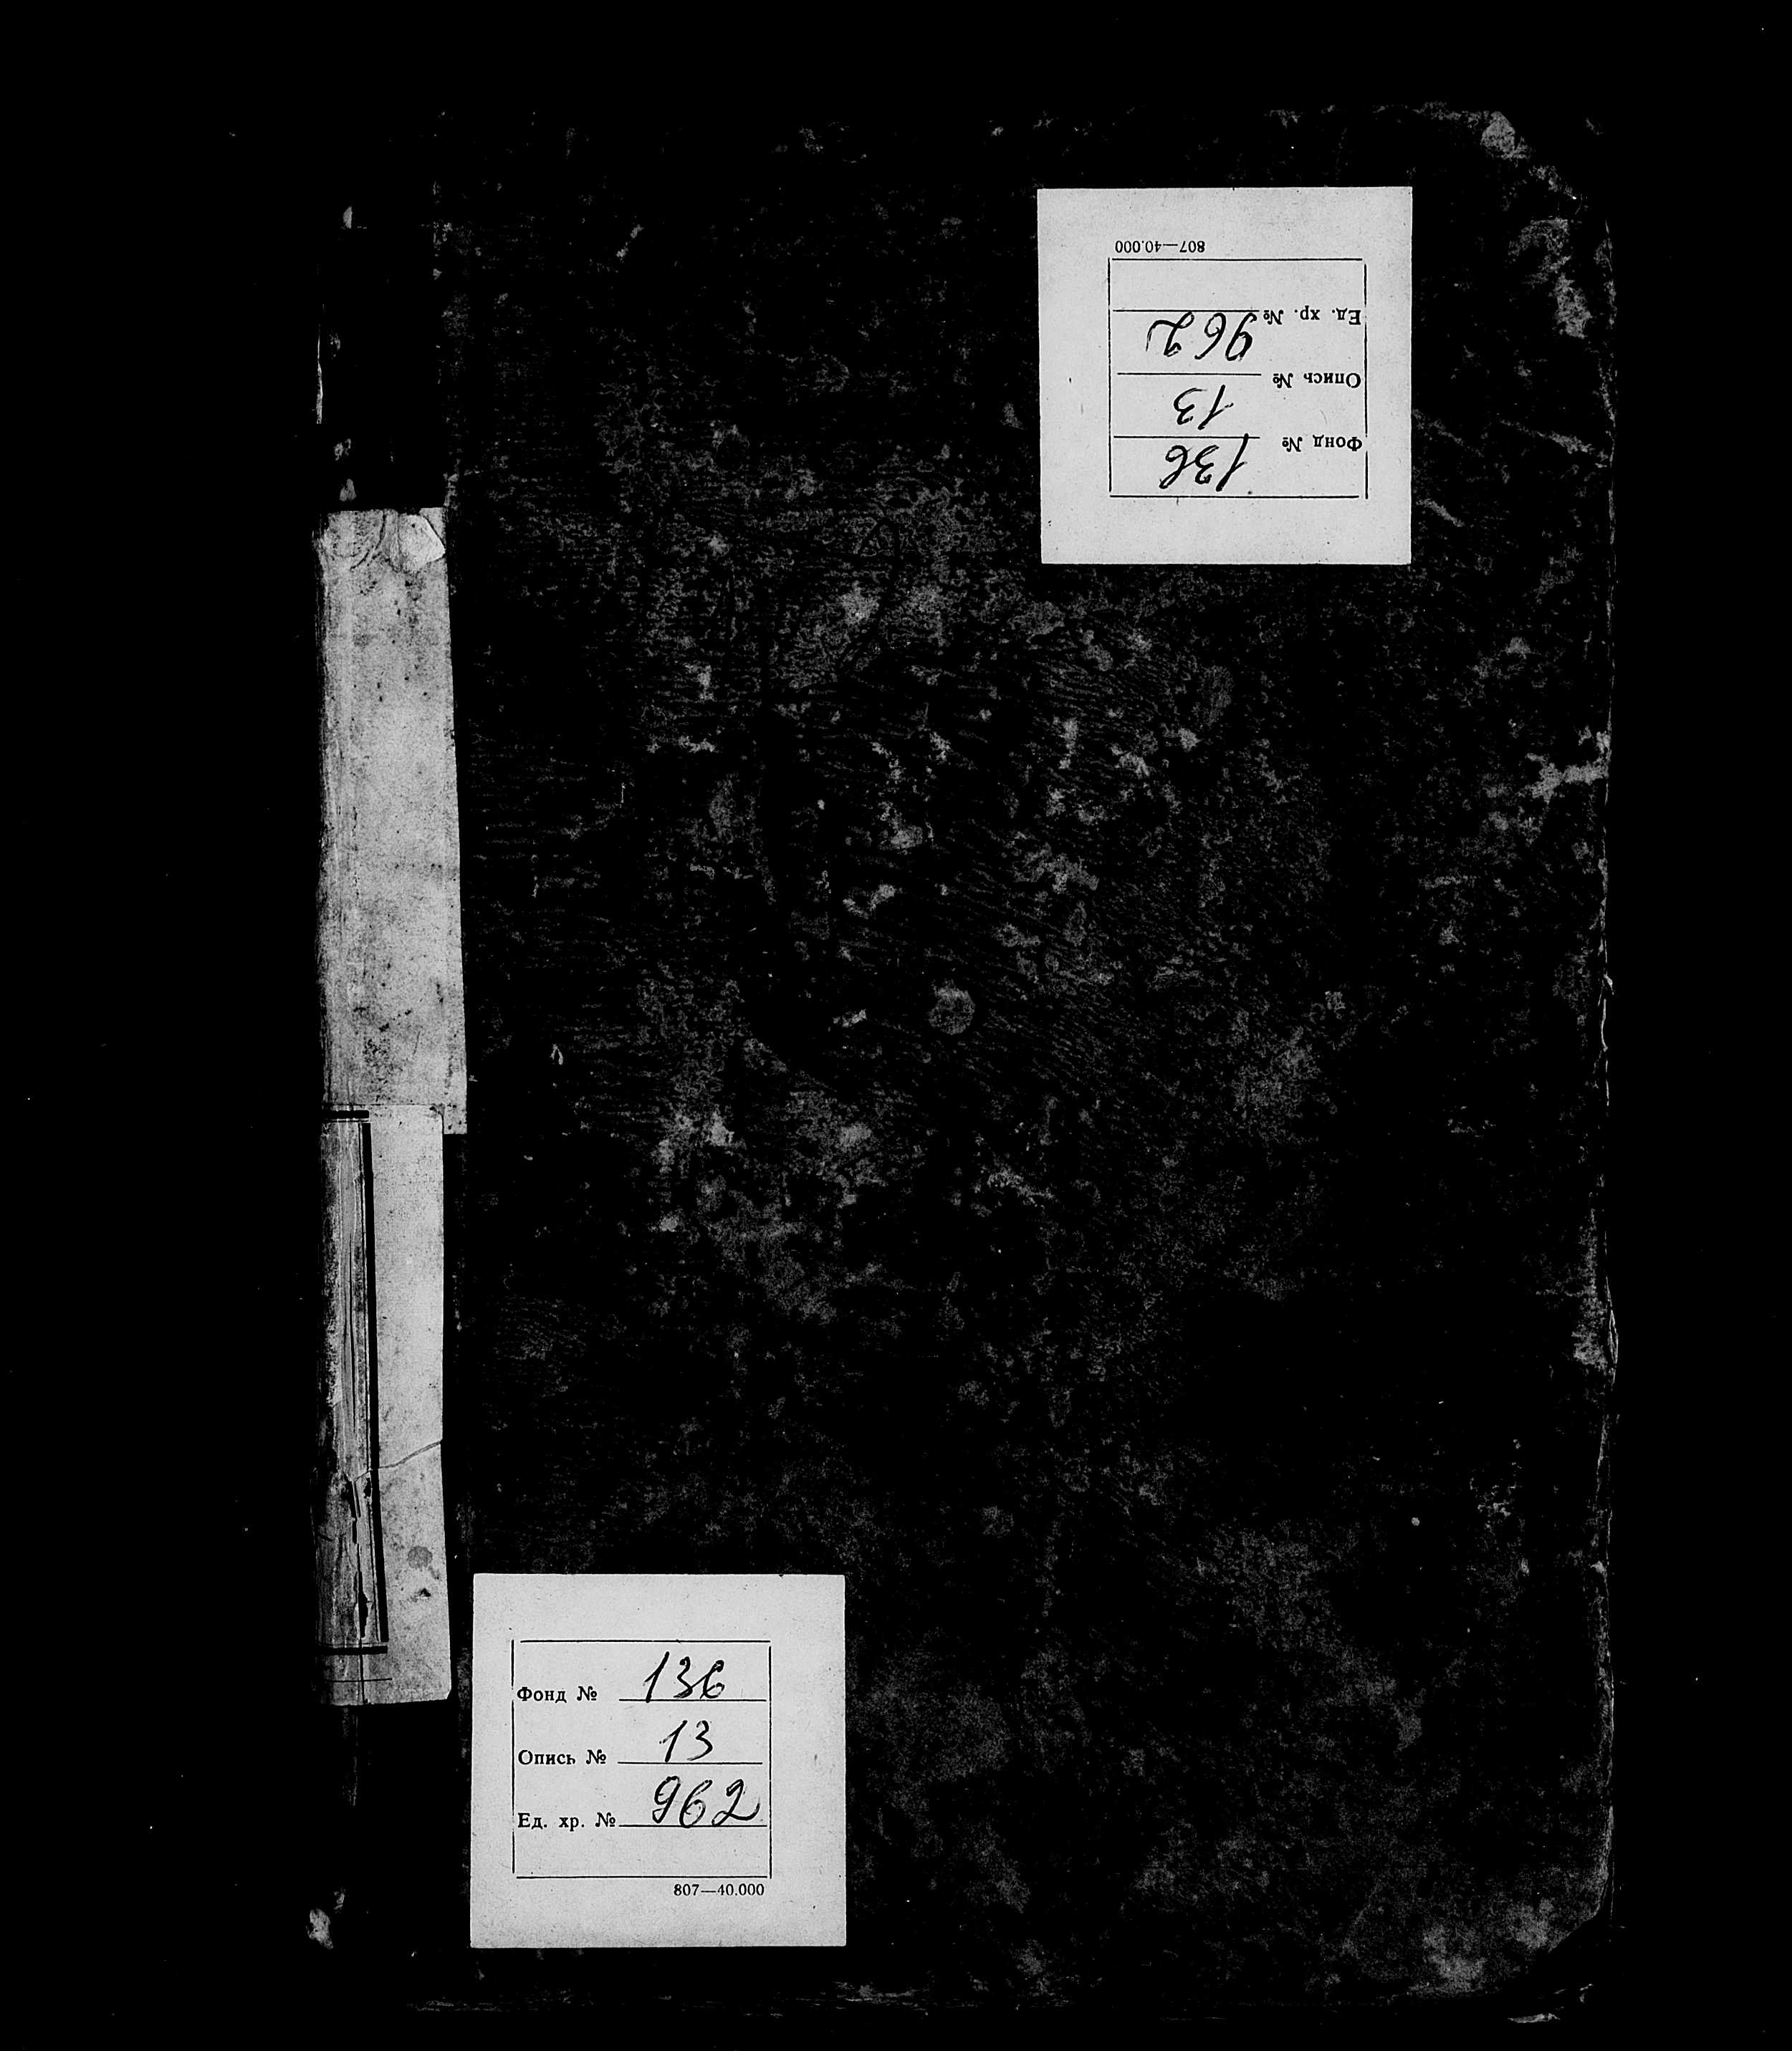 Фонд № 136
Опись № 13
Ед. хр. № 962
807—40.000
Фонд № 136
Опись № 13
Ед. хр. № 962
807—40.000